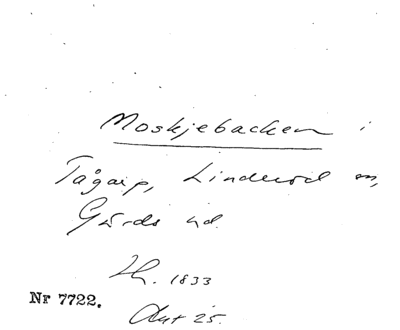 Moskjebacken i
Tågarp, Linderöd sn,
Gärds hd.
Lh. 1833
Nr 7722.
Akt 25.